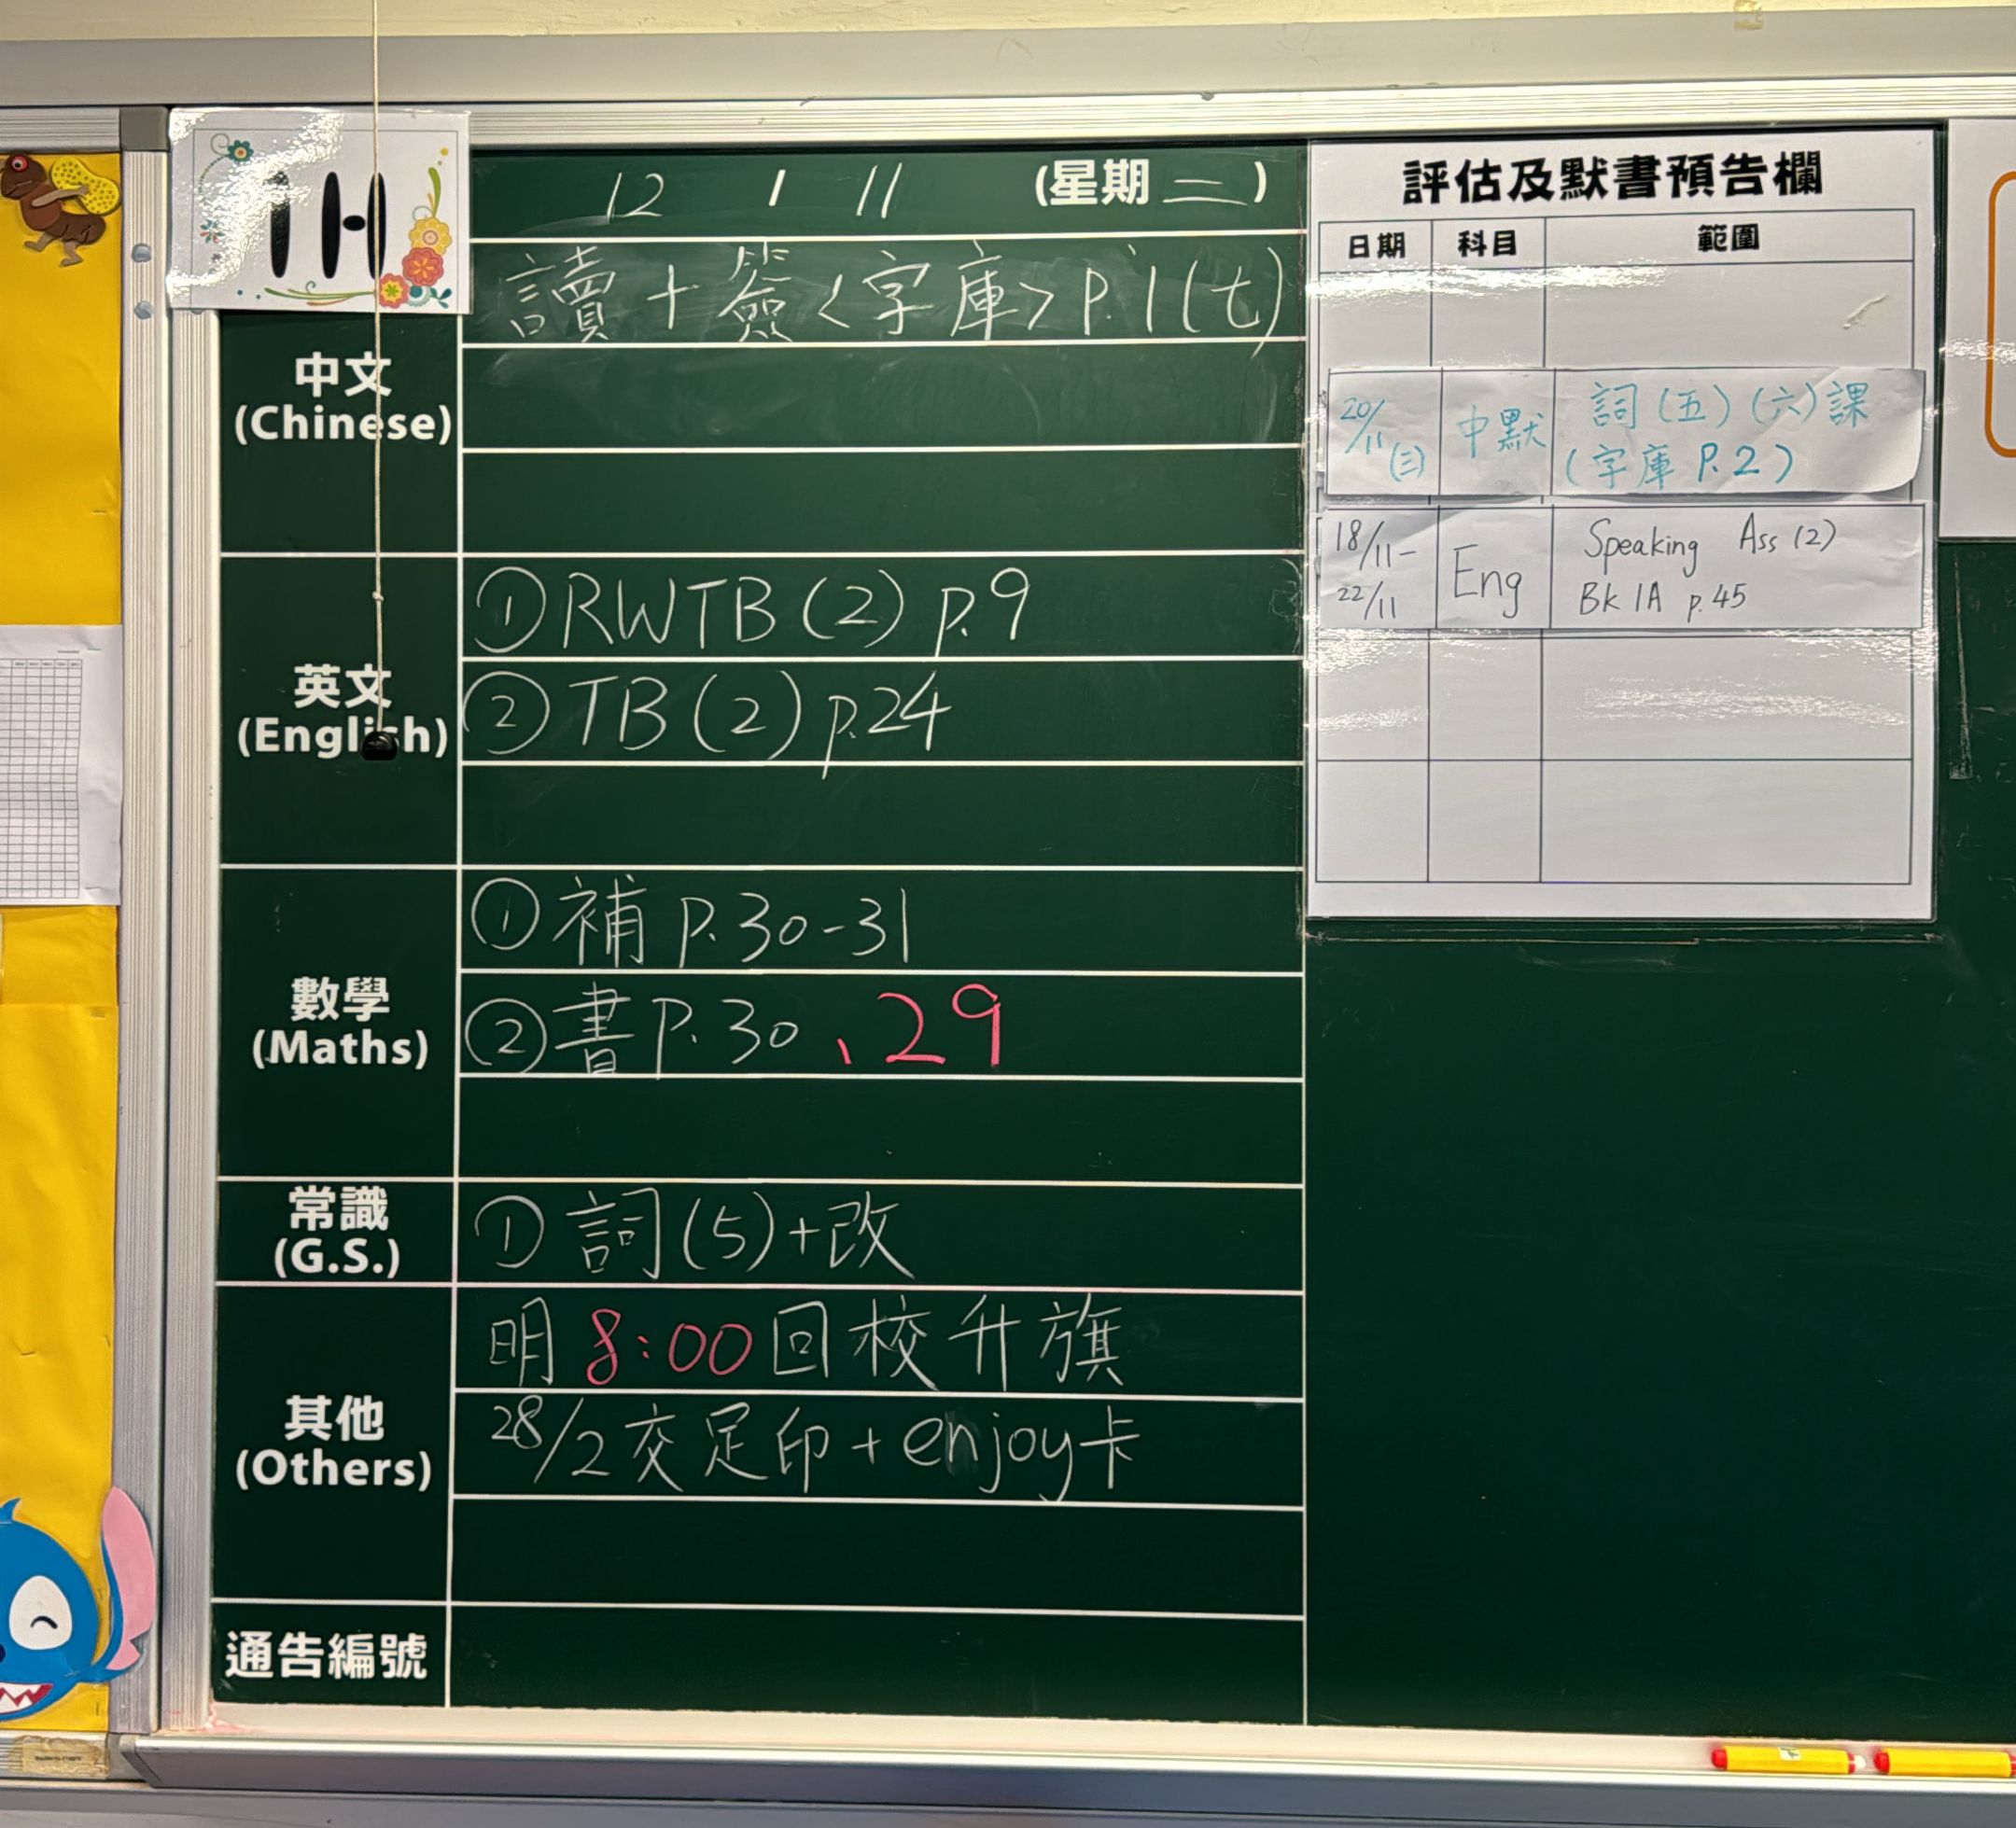 1H
12 / 11 (星期二)
讀+簽<字庫>P.1(七)
中文
(Chinese)
英文
(English)
① RWTB (2) p.9
② TB (2) p.24
數學
(Maths)
① 補 P.30-31
② 書 P.30、29
常識
(G.S.)
① 詞(5)+改
其他
(Others)
明 8:00 回校升旗
28/2 交足印+enjoy卡
通告編號
評估及默書預告欄
日期 科目 範圍
20/11 (三) 中默 詞(五)(六)課
(字庫 P.2)
18/11- Eng Speaking Ass (2)
22/11 Bk 1A p.45